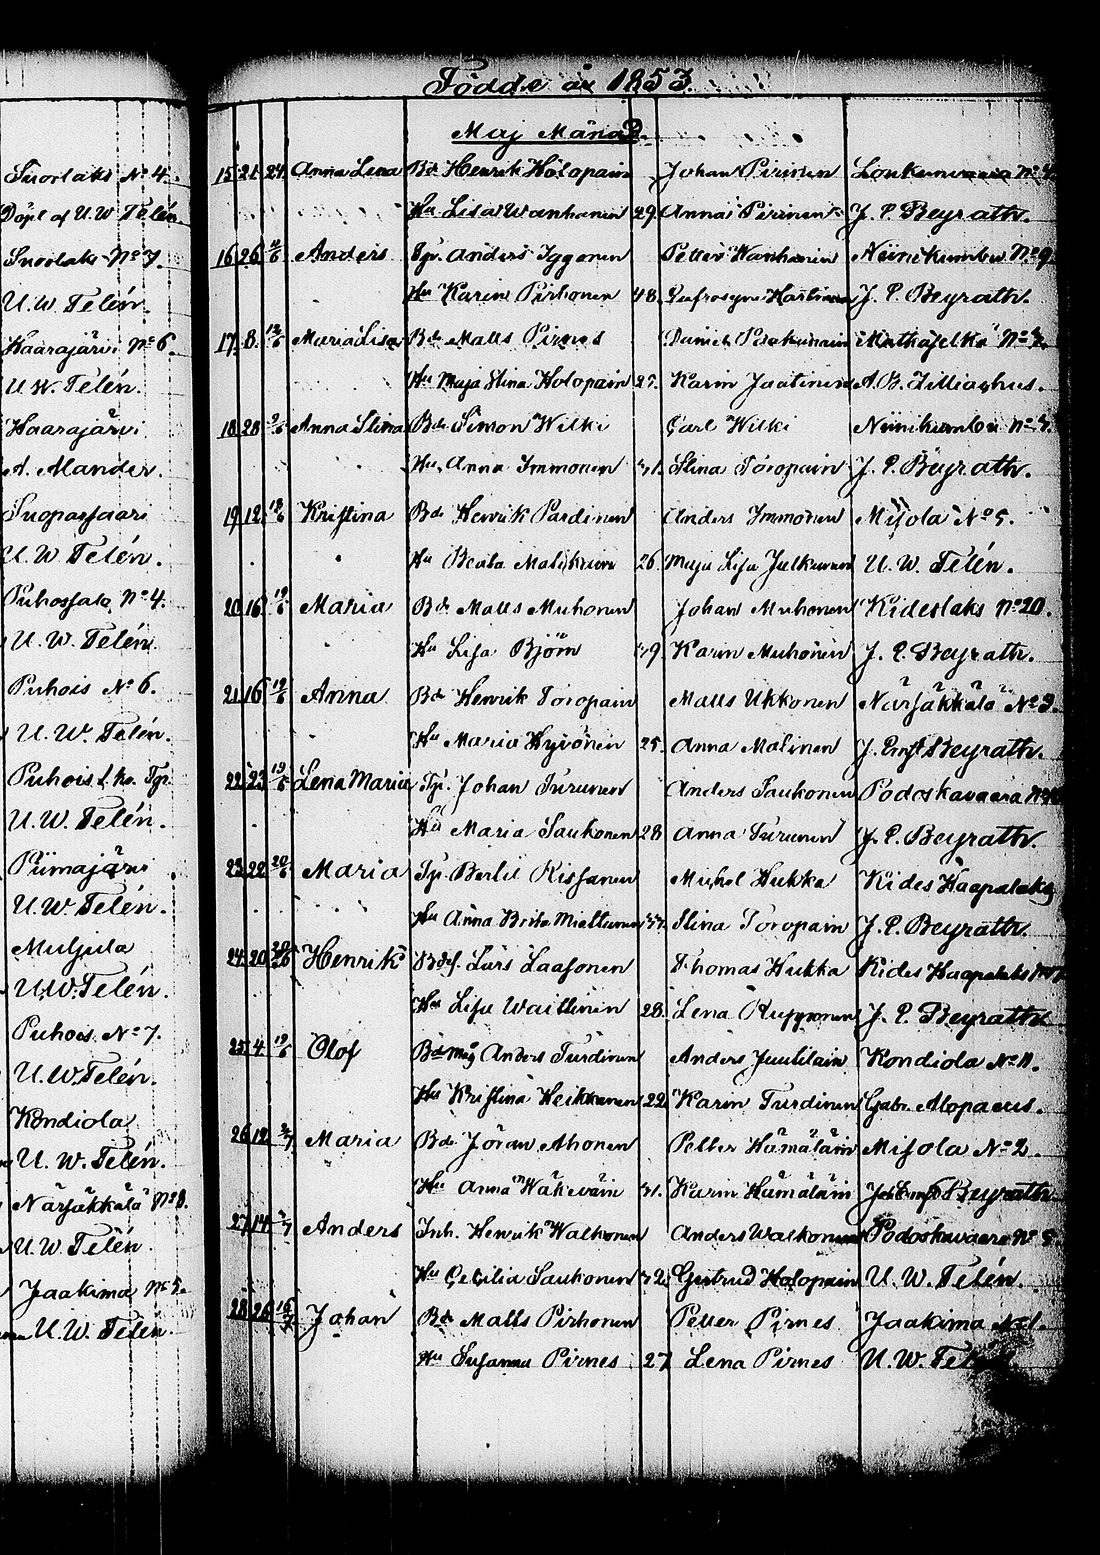 Suorlaks No 4.
Döpt af U. W. Telén.
Suorlaks No 7.
U. W. Telén.
Haarajärvi No 6.
U. W. Telén.
Haarajärvi
A. Alander.
Suoparsaari
U. W. Telén.
Puhossalo No 4.
U. W. Telén.
Puhois No 6.
U. W. Telén.
Puhois
U. W. Telén.
Piimajärvi
U. W. Telén.
Muljula
U. W. Telén.
Puhois No 7.
U. W. Telén.
Kondiola
U. W. Telén.
Närsäkkälä No 8.
U. W. Telén.
Jaakima No 5.
U. W. Telén.
Födde år 1853.
Maj Månad.
15 21 24 Anna Lena Bd Henrik Holopain Johan Pirinen
Hu Lisa Wanhanen 29. Anna Pirinen J. E. Beyrath.
16 26 4/6 Anders Tjr. Anders Iggonen Petter Wanhanen Niinikumbu No 9
Hu Karin Pirhonen 48. J. E. Beyrath.
17 8 12/6 Maria Lisa Bd Matts Pirnes
Hu Maja Stina Holopain 27. Karin Jaatinen A. B. Zilliachus.
18 28 5/6 Anna Stina Bd Simon Wilki Carl Wilki Niinikumbu No 7.
Hu Anna Immonen 31. Stina Toropain J. E. Beyrath.
19 12 13/6 Kristina Bd Henrik Pardinen Anders Immonen Misola No 5.
Hu Beata 26 Maja Lisa Julkunen U. W. Telén.
20 16 19/6 Maria Bd Matts Muhonen Johan Muhonen Kideslaks No 20.
Hu Lisa Björn 39. Karin Muhonen J. E. Beyrath.
21 16 19/6 Anna Bd Henrik Toropain Matts Ukkonen Närsäkkälä No 3.
Hu Maria Hyvönen 25. Anna Malinen J. Ernst Beyrath.
22 23 19/6 Lena Maria Tjr. Johan Turunen Anders Saukonen Podoskavaara
Hu Maria Saukonen 28 Anna Turunen J. E. Beyrath.
23 22 20/6 Maria Tjr. Bertil Rissanen Michel Hukka Kides Haapalaks
Hu Anna Brita Miettunen Stina Toropain J. E. Beyrath.
24 20 26/6 Henrik Bdsf. Lars Laasonen Thomas Hukka Kides Haapalaks
Hu Lisa Waittinen 28. Lena Ruppunen J. E. Beyrath
25 4 19/6 Olof Anders Turdinen Anders Juutilain Kondiola No 11.
Hu Kristina Heikkanen 22. Karin Turdinen Gabr. Alopaeus.
26 12 3/7 Maria Bd Jöran Ahonen Petter Hämäläin Misola No 2.
Hu Anna Wäkeväin 31. Karin Hämäläin Joh Ernst Beyrath.
27 14 3/7 Anders Inh. Henrik Walkonen Anders Walkonen Podoskavaara No 5.
Hu Cecilia Saukonen 32. Gertrud Holopain U. W. Telén.
28 26 16/7 Johan Bd Matts Pirhonen Petter Pirnes Jaakima No 1.
Hu Susanna Pirnes 27 Lena Pirnes U. W. Telén.